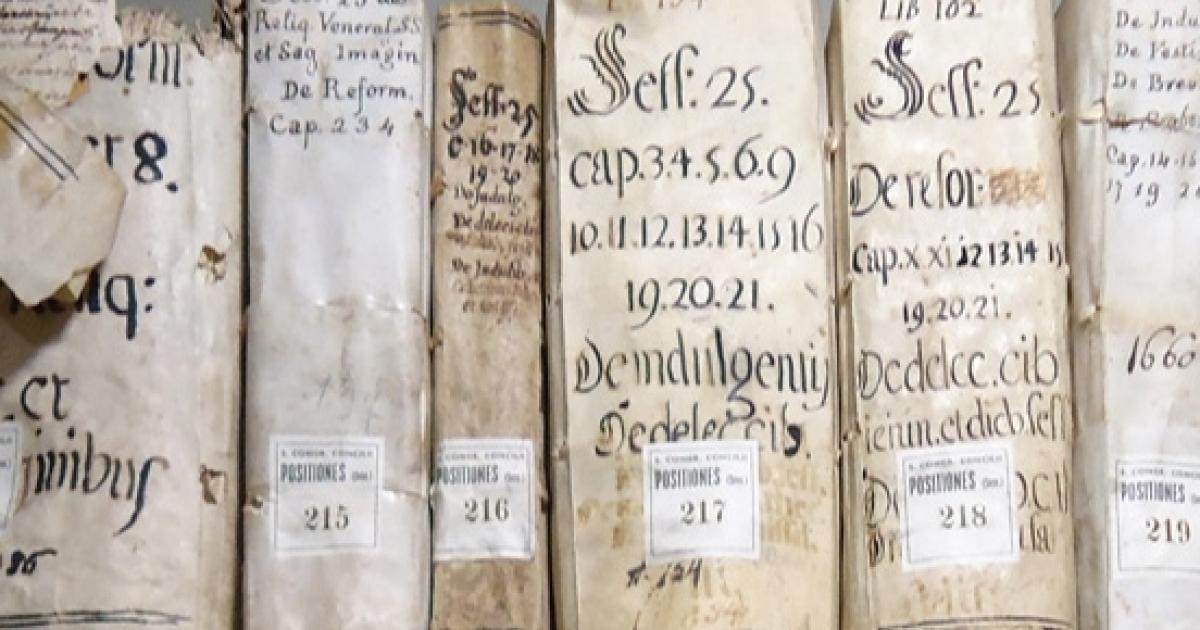 orm.
8.
iq:
et
inibus
86
Reliq. Venerat. SS
et Sag. Imagin
De Reform.
Cap. 2 3 4
S. CONGR. CONCILII
POSITIONES (Sess.)
215
Sess. 25
C. 16. 17. 18
19. 20
De Indulg.
De delect. cib
De Indulg.
S. CONGR. CONCILII
POSITIONES (Sess.)
216
Sess: 25.
cap. 3. 4. 5. 6. 9
10. 11. 12. 13. 14. 15 16
19. 20. 21.
De indulgentiis
De delec cib.
S. CONGR. CONCILII
POSITIONES (Sess.)
217
124
LIB 102
Sess: 25.
De refor:
Cap. x xi 12 13 14 15
19. 20. 21.
De delec. cib
ieiun. et dieb fest
S. CONGR. CONCILII
POSITIONES (Sess.)
218
De Indu
De Festi
De Brev
Cap. 14. 16
17 19 2
1660
S. CONGR. CONCILII
POSITIONES
219